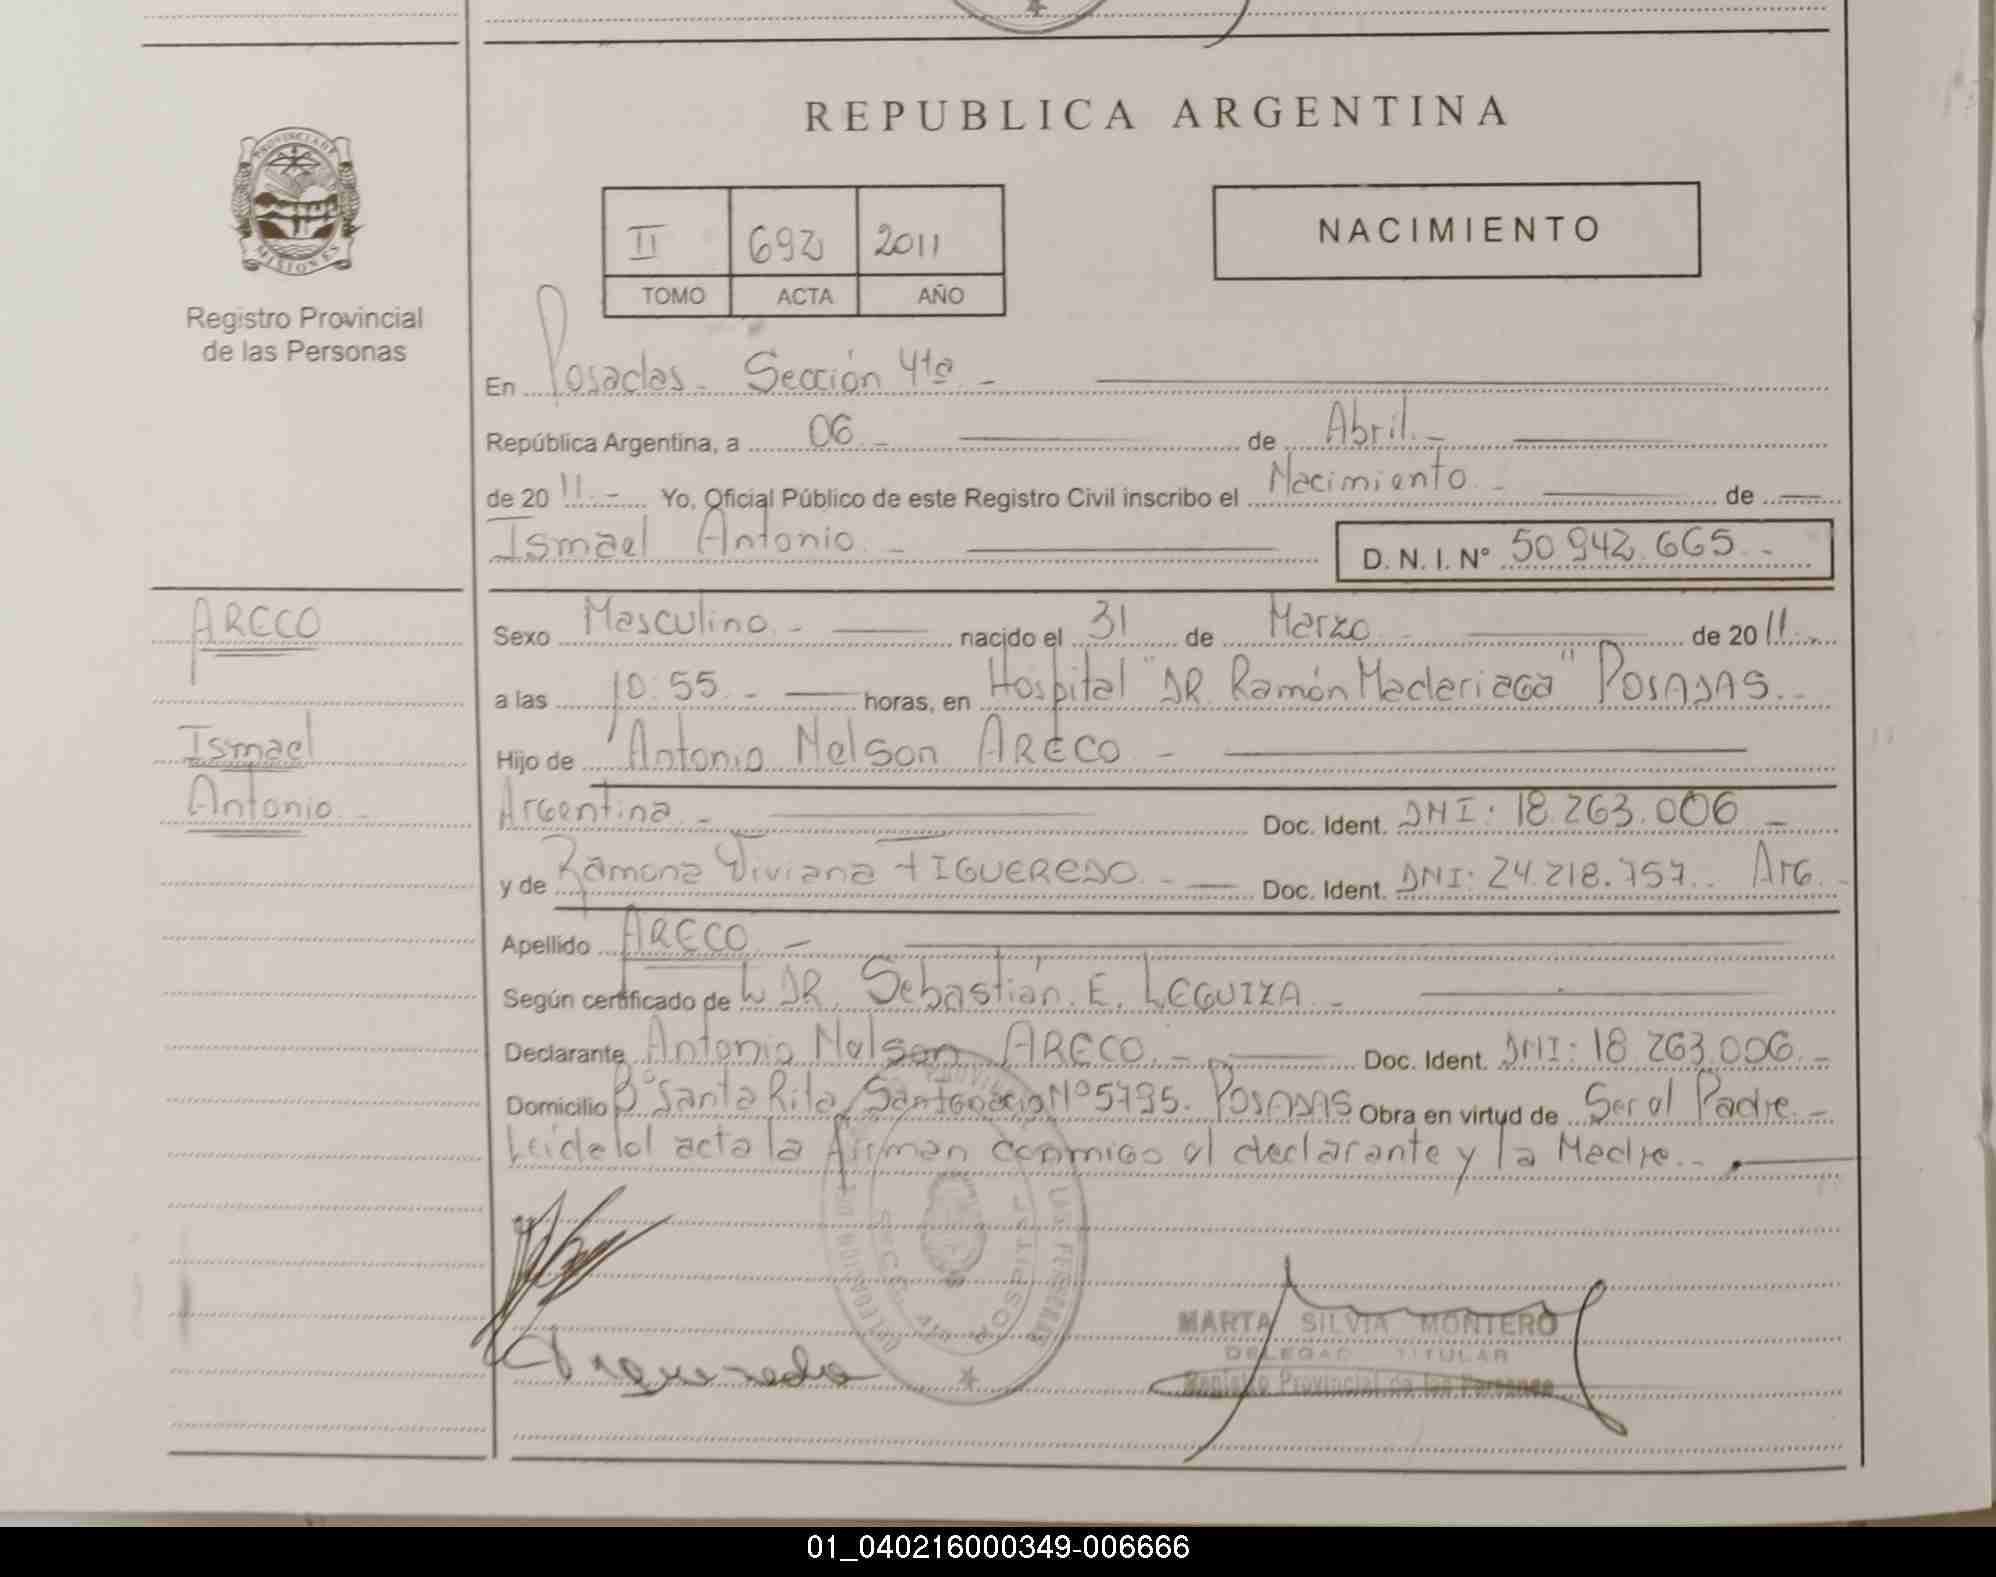 REPUBLICA ARGENTINA
PROVINCIA DE
MISIONES
Registro Provincial
de las Personas
II 692 2011
TOMO ACTA AÑO
NACIMIENTO
En Posadas - Sección 4ta -
República Argentina, a 06 - de Abril. -
de 20 11. - Yo, Oficial Público de este Registro Civil inscribo el Nacimiento - de
Ismael Antonio - D. N. I. N° 50 942.665 -
ARECO
Ismael
Antonio -
Sexo Masculino - nacido el 31 de Marzo - de 20 11.
a las 10:55 - horas, en Hospital "DR. Ramón Madariaga" POSADAS.
Hijo de Antonio Nelson ARECO -
Argentina - Doc. Ident. DNI: 18.263.006 -
y de Ramona Viviana FIGUEREDO - Doc. Ident. DNI: 24.218.757. Arg. -
Apellido ARECO -
Según certificado de DR. Sebastián. E. LEGUIZA -
Declarante Antonio Nelson ARECO. - Doc. Ident. DNI: 18.263.006. -
Domicilio B° Santa Rita, N° 5795. POSADAS Obra en virtud de Ser el Padre. -
Leída el acta la firman conmigo el declarante y la Madre. -
Figueredo
MARTA SILVIA MONTERO
TITULAR
Registro Provincial de las Personas
01_040216000349-006666